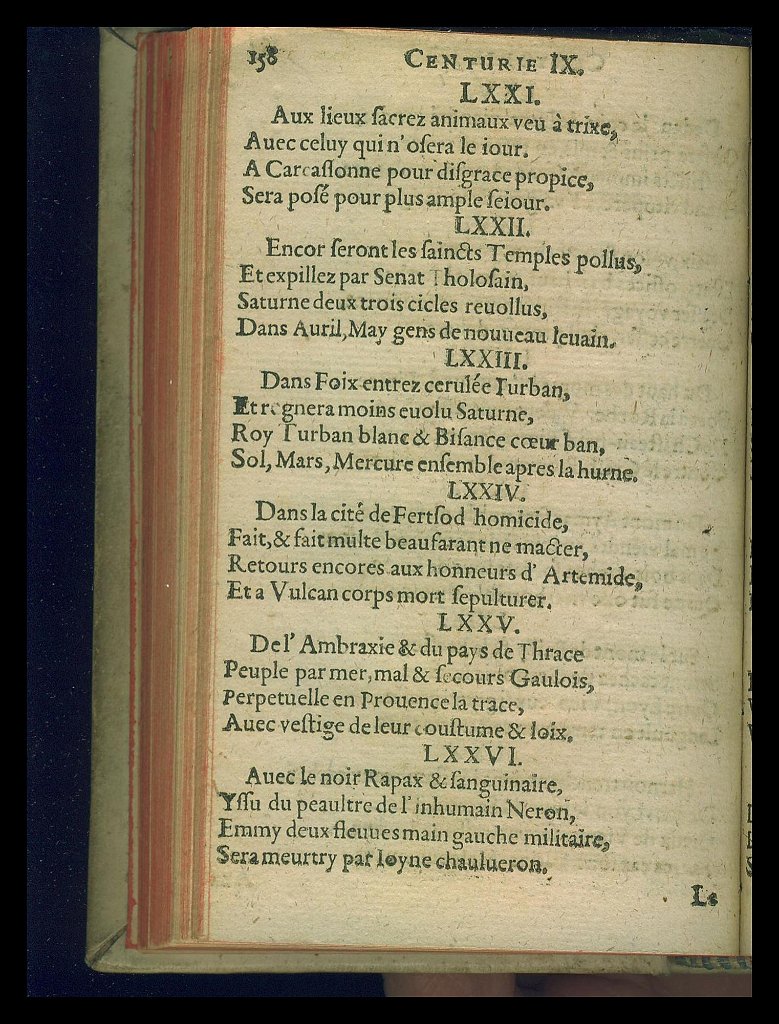 158
CENTURIE IX.
LXXI.
Aux lieux ſacrez animaux veu à trixe,
Auec celuy qui n'oſera le iour.
A Carcaſſonne pour diſgrace propice,
Sera poſé pour plus ample ſeiour.
LXXII.
Encor ſeront les ſaincts Temples pollus,
Et expillez par Senat Tholoſain,
Saturne deux trois cicles reuollus,
Dans Auril, May gens de nouueau leuain.
LXXIII.
Dans Foix entrez cerulée Turban,
Et regnera moins euolu Saturne,
Roy Turban blanc & Biſance cœur ban,
Sol, Mars, Mercure enſemble apres la hurne.
LXXIV.
Dans la cité de Fertſod homicide,
Fait, & fait multe beau farant ne macter,
Retours encores aux honneurs d'Artemide,
Et a Vulcan corps mort ſepulturer.
LXXV.
De l'Ambraxie & du pays de Thrace
Peuple par mer, mal & ſecours Gaulois,
Perpetuelle en Prouence la trace,
Auec veſtige de leur couſtume & loix.
LXXVI.
Auec le noir Rapax & ſanguinaire,
Yſſu du peaultre de l'inhumain Neron,
Emmy deux fleuues main gauche militaire,
Sera meurtry par Ioyne chaulueron.
Le